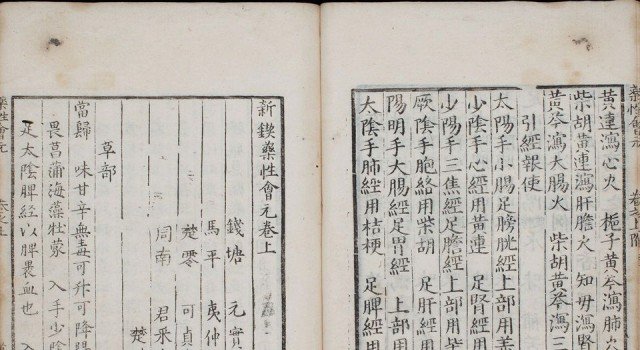 黃連瀉心火 梔子黃芩瀉肺火
柴胡黃連瀉肝膽火 知母瀉腎
黃芩瀉大腸火 柴胡黃芩瀉三
引經報使
太陽手小腸足膀胱經上部用羌
少陰手心經用黃連 足腎經用
少陽手三焦經足膽經上部用柴
厥陰手胞絡用柴胡 足肝經用
陽明手大腸經足胃經 上部用
太陰手肺經用桔梗 足脾經
新鍥藥性會元卷上
錢塘 元實
馬平 夷仲
楚零 可貞
周南 君采
楚
草部
當歸 味甘辛無毒可升可降陽
畏菖蒲海藻牡蒙 入手少陰
足太陰脾經以脾裹血也 入
藥性會元 卷之上